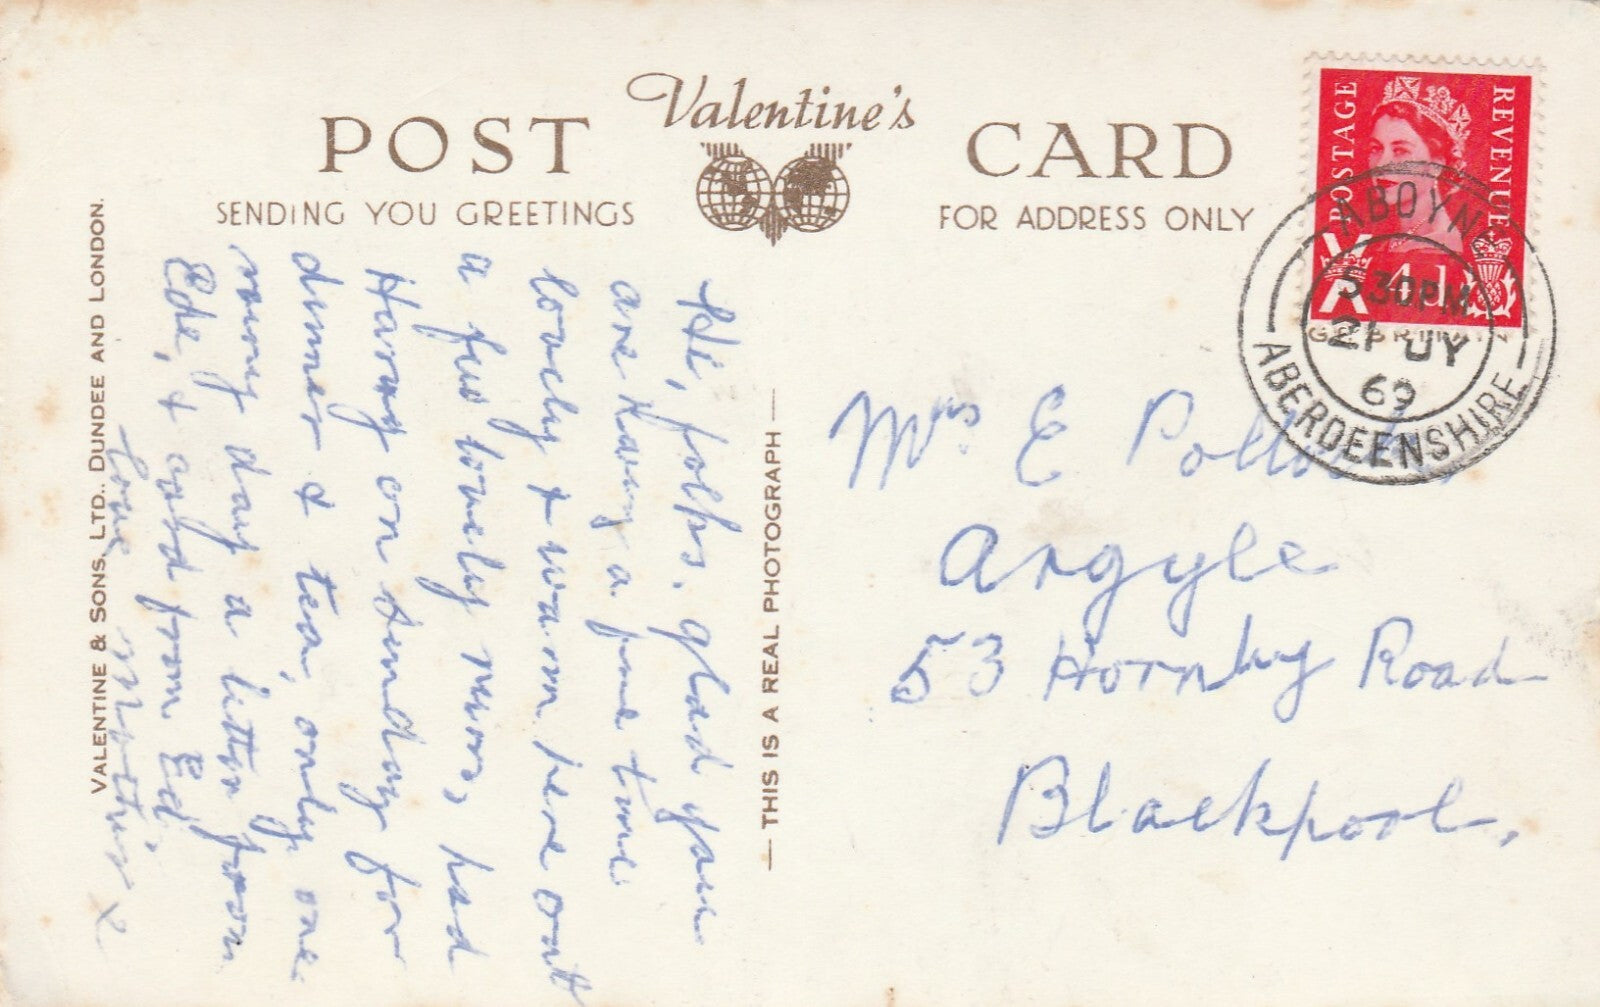 Valentine's
POST CARD
SENDING YOU GREETINGS
FOR ADDRESS ONLY
VALENTINE & SONS, LTD., DUNDEE AND LONDON.
— THIS IS A REAL PHOTOGRAPH —
POSTAGE
REVENUE
4d
ABOYNE
5 30PM
21 JY
69
ABERDEENSHIRE
Hi, folks, glad you
are having a fine time
lovely & warm here out
a few lovely runs, had
Harry on Sunday for
dinner & tea, only one
day a letter from
Ede, & card from Ed.
Love
x
Mrs E
Argyle
53 Hornby Road
Blackpool.